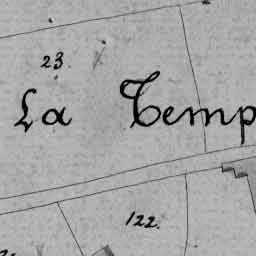 23.
La Temp
122.